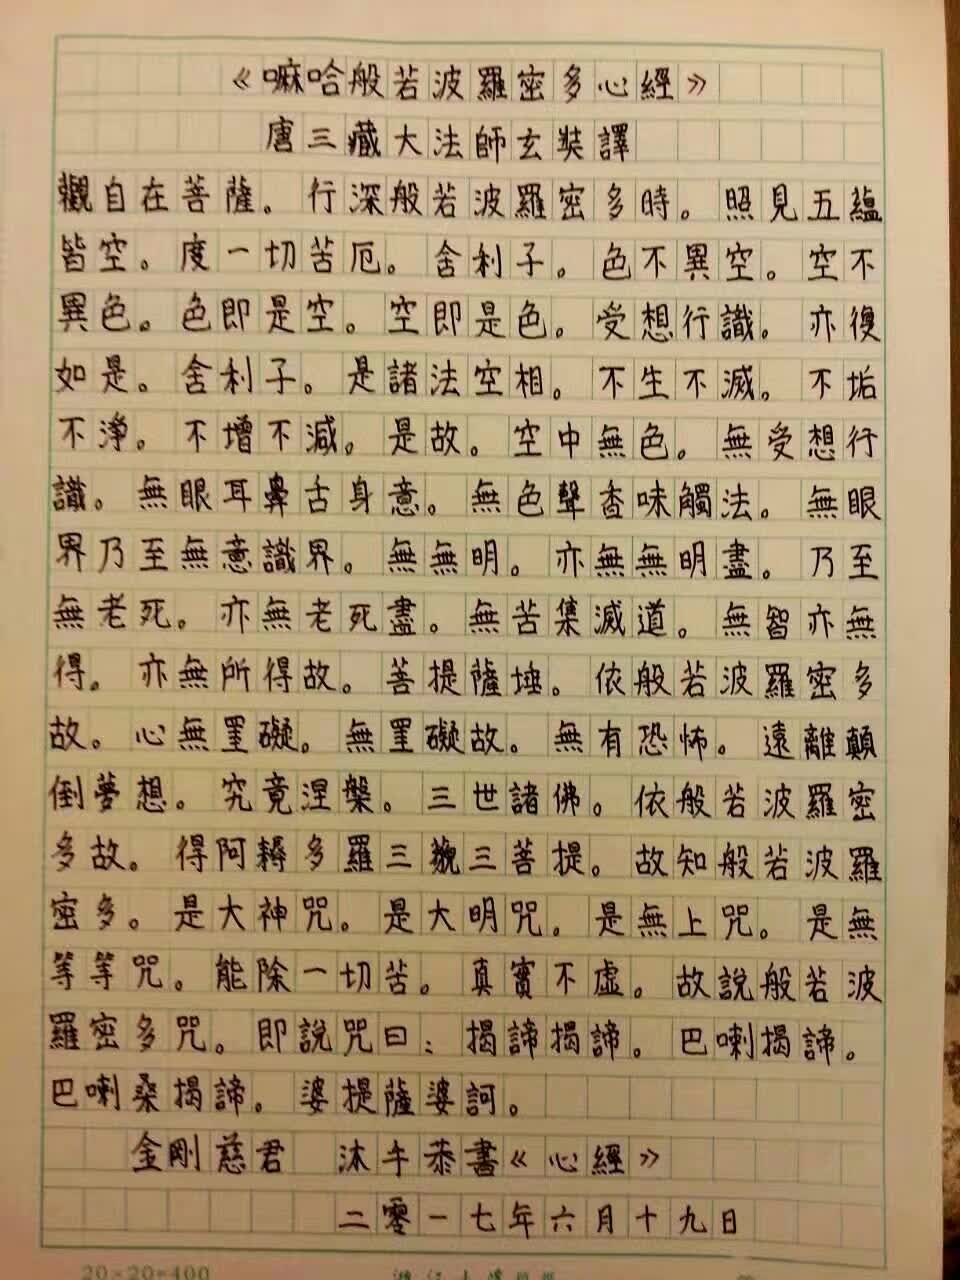 《嘛哈般若波羅密多心經》
唐三藏大法師玄奘譯
觀自在菩薩。行深般若波羅密多時。照見五蘊
皆空。度一切苦厄。舍利子。色不異空。空不
異色。色即是空。空即是色。受想行識。亦復
如是。舍利子。是諸法空相。不生不滅。不垢
不淨。不增不減。是故。空中無色。無受想行
識。無眼耳鼻舌身意。無色聲香味觸法。無眼
界乃至無意識界。無無明。亦無無明盡。乃至
無老死。亦無老死盡。無苦集滅道。無智亦無
得。亦無所得故。菩提薩埵。依般若波羅密多
故。心無罣礙。無罣礙故。無有恐怖。遠離顛
倒夢想。究竟涅槃。三世諸佛。依般若波羅密
多故。得阿耨多羅三藐三菩提。故知般若波羅
密多。是大神咒。是大明咒。是無上咒。是無
等等咒。能除一切苦。真實不虛。故說般若波
羅密多咒。即說咒曰：揭諦揭諦。巴喇揭諦。
巴喇桑揭諦。婆提薩婆訶。
金剛慈君 沐手恭書《心經》
二零一七年六月十九日
20×20=400